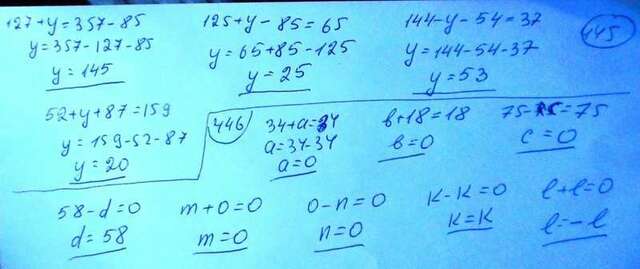 127+y=357-85
y=357-127-85
y=145
125+y-85=65
y=65+85-125
y=25
144-y-54=37
y=144-54-37
y=53
445
52+y+87=159
y=159-52-87
y=20
446
34+a=34
a=34-34
a=0
b+18=18
b=0
75- =75
c=0
58-d=0
d=58
m+0=0
m=0
0-n=0
n=0
k-k=0
k=k
l+l=0
l=-l